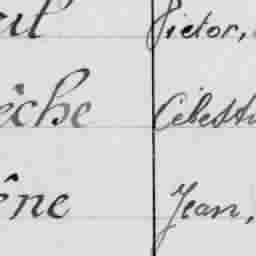 Victor,
èche Célesti
ène Jean,